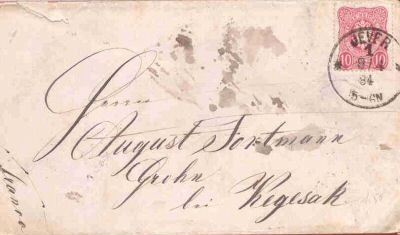 JEVER
1
9 4
84
5-6N
10 10
Herrn
August Fortmann
Grohn
bei Vegesak
Franco